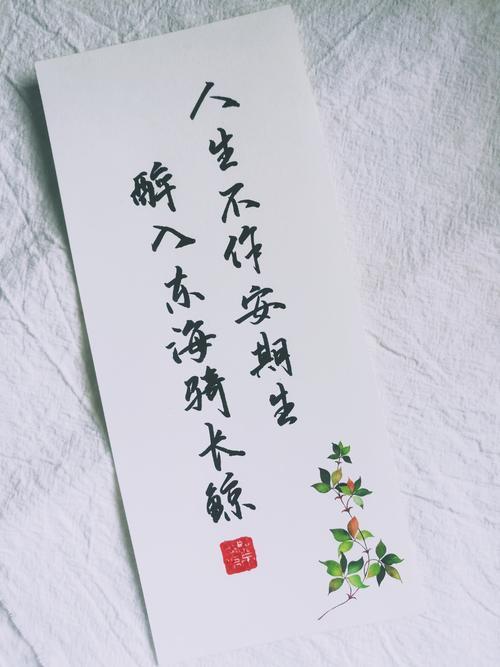 人生不作安期生
醉入东海骑长鲸